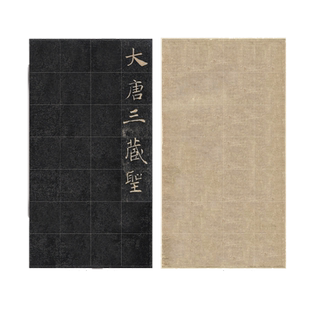 大唐三藏聖